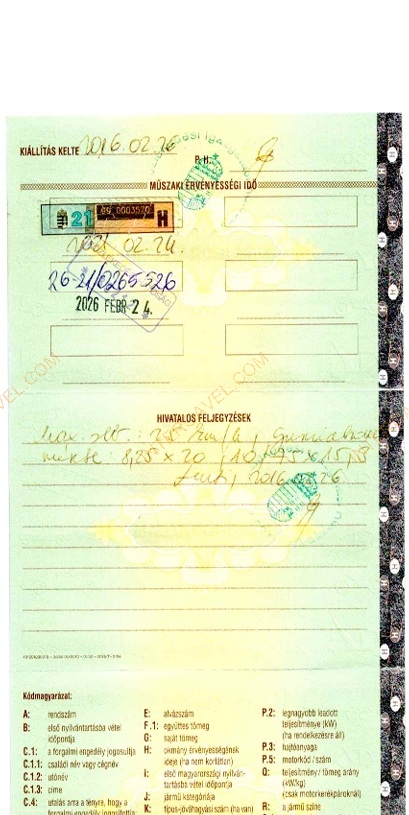 KIÁLLÍTÁS KELTE 2016.02.26
P. H.
MŰSZAKI ÉRVÉNYESSÉGI IDŐ
21 99 0003570 H
2021 02.24
26-21/0265526
2026 FEBR 24.
HIVATALOS FELJEGYZÉSEK
25 km/h,
8,25 x 20 / 10
2016.02.26
Kódmagyarázat:
A: rendszám
B: első nyilvántartásba vétel időpontja
C.1: a forgalmi engedély jogosultja
C.1.1: családi név vagy cégnév
C.1.2: utónév
C.1.3: címe
C.4: utalás arra a tényre, hogy a
forgalmi engedély jogosultja
E: alvázszám
F.1: együttes tömeg
G: saját tömeg
H: okmány érvényességének
ideje (ha nem korlátlan)
I: első magyarországi nyilván-
tartásba vétel időpontja
J: jármű kategóriája
K: típus-jóváhagyási szám (ha van)
P.2: legnagyobb leadott
teljesítménye (kW)
(ha rendelkezésre áll)
P.3: hajtóanyaga
P.5: motorkód / szám
Q: teljesítmény / tömeg arány
(kW/kg)
(csak motorkerékpároknál)
R: a jármű színe